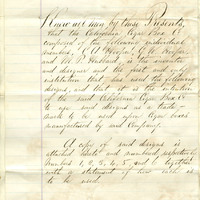 Know all men by these Presents,
that the California Cigar Box Co
composed of the following individual
members,
and W. P. Hubbard, is the inventor
and designer and the first
that has used the following
designs, and that it is the intention
of the said California Cigar Box Co
to use said designs as a trade-
mark to be used upon cigar boxes
manufactured by said Company.
A copy of said designs is
attached hereto and numbered respectively
Numbers 1, 2, 3, 4, 5, and 6 together
with a statement of how each is
to be used.